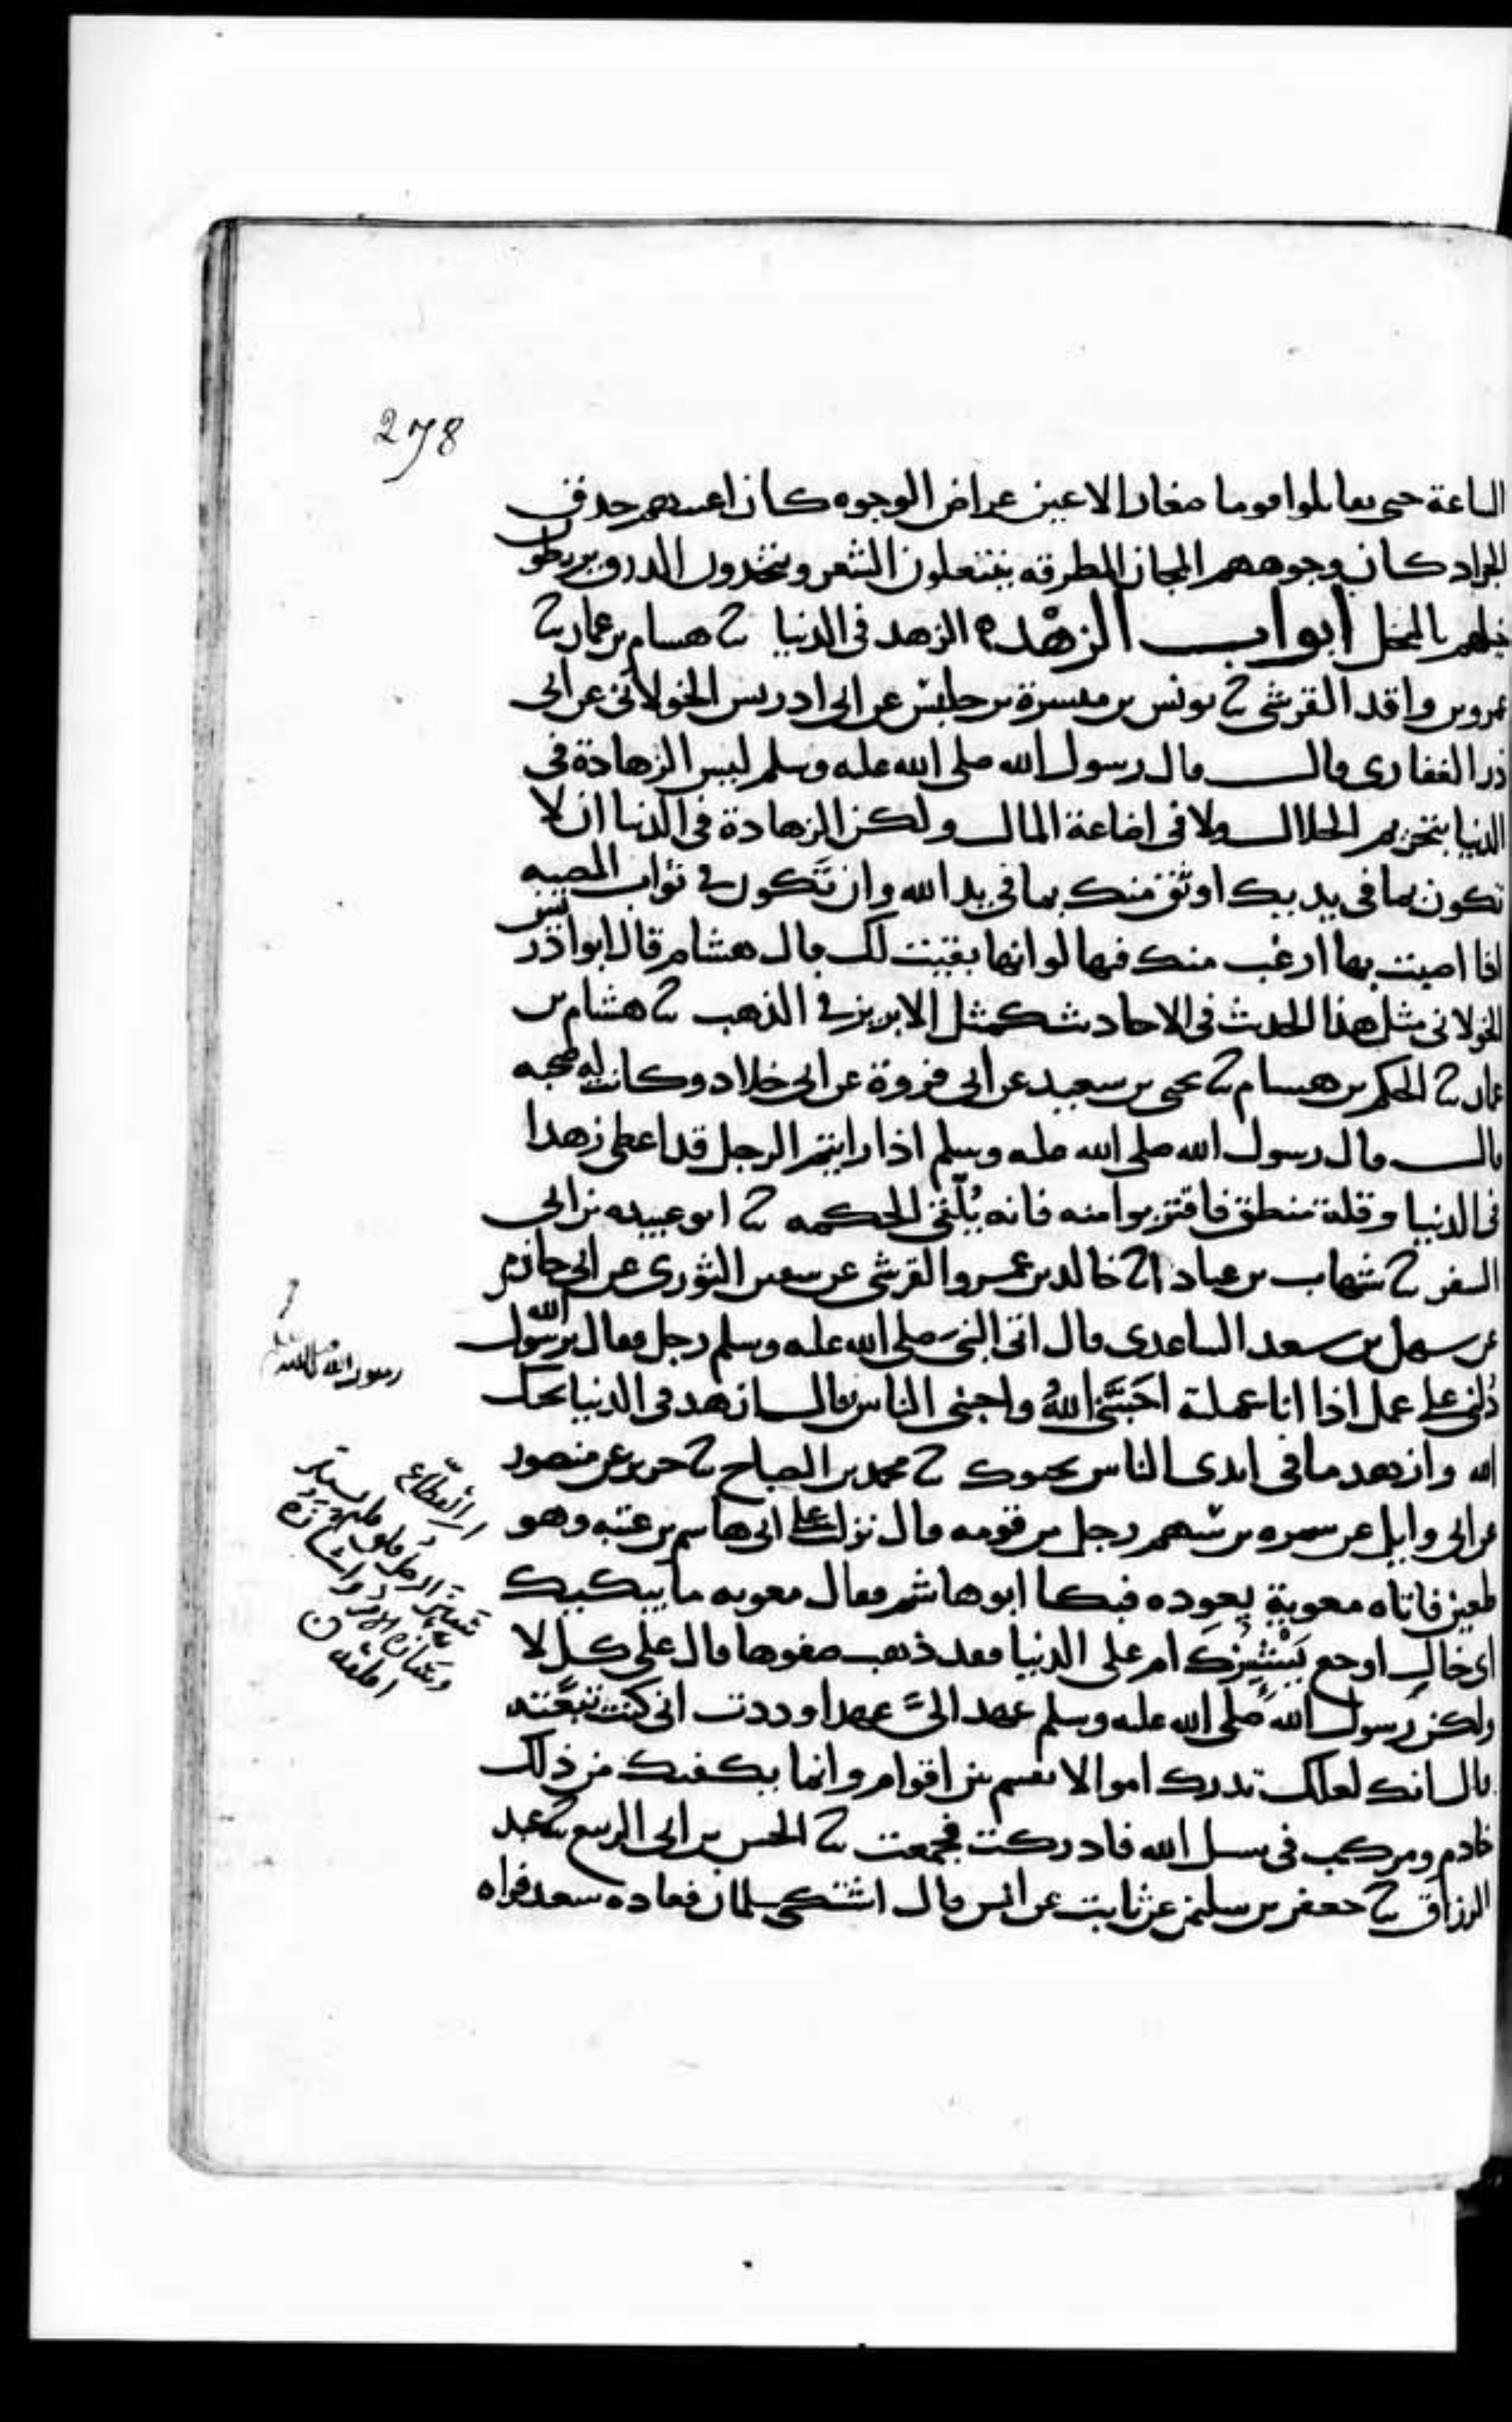 278
الساعة حتى تقاتلوا قوما صغار الاعين عراض الوجوه كان اعينهم حدق
الجراد كان وجوههم المجان المطرقه ينتعلون الشعر ويتخذون الدرق يربطون
خيلهم بالنخل ابواب الزهد ه الزهد في الدنيا ثنا هشام بن عمار ثنا
عمرو بن واقد القرشي ثنا يونس بن ميسرة بن حلبس عن ابي ادريس الخولاني عن ابي
ذر الغفاري قال قال رسول الله صلى الله عليه وسلم ليس الزهادة في
الدنيا بتحريم الحلال ولا في اضاعة المال ولكن الزهادة في الدنيا ان لا
تكون بما في يديك اوثق منك بما في يد الله وان تكون في ثواب المصيبه
اذا اصبت بها ارغب منك فيها لو انها بقيت لك قال هشام قال ابو ادريس
الخولاني مثل هذا الحديث في الاحاديث كمثل الابريز في الذهب ثنا هشام بن
عمار ثنا الحكم بن هشام ثنا يحيى بن سعيد عن ابي فروة عن ابي خلاد وكانت له صحبه
قال قال رسول الله صلى الله عليه وسلم اذا رايتم الرجل قد اعطي زهدا
في الدنيا وقلة منطق فاقتربوا منه فانه يُلَقَّى الحكمه ثنا ابو عبيده بن ابي
السفر ثنا شهاب بن عباد ثنا خالد بن عمرو القرشي عن سفين الثوري عن ابي حازم
عن سهل بن سعد الساعدي قال اتى النبيَ صلى الله عليه وسلم رجل فقال يرسول الله
دُلني على عمل اذا انا عملته احَبَّنَي اللهُ واحبني الناس فقال ازهد في الدنيا يحبك
الله وازهد ما في ايدي الناس يحبوك ثنا محمد بن الصباح ثنا جرير عن منصور
عن ابي وايل عن سمره بن سهم رجل من قومه قال نزلت على ابي هاشم بن عتبه وهو
طعين فاتاه معوية يعوده فبكا ابو هاشم فقال معويه ما يبكيك
اي خال اوجع يُشْئِزُكَ ام على الدنيا فقد ذهب صفوها قال على كل لا
ولكن رسول الله صلى الله عليه وسلم عهد اليَّ عهدا وددت اني كنت تبعته
قال انك لعلك تدرك اموالا تقسم بين اقوام وانما يكفيك من ذلك
خادم ومركب في سبيل الله فادركت فجمعت ثنا الحسن بن ابي الربيع ثنا عبد
الرزاق ثنا جعفر بن سليمن عن ثابت عن انس قال اشتكى سلمان فعاده سعد فراه